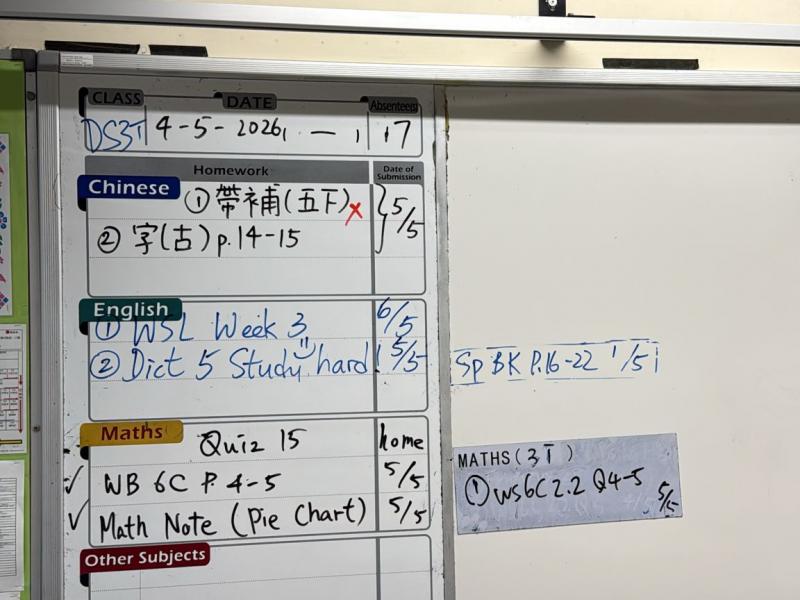 CLASS DATE Absentee(s)
DS3T 4-5-2026, 一, 17
Homework Date of Submission
Chinese
① 帶補(五下)x } 5/5
② 字(古) p.14-15
English
① WSL Week 3 6/5
② Dict 5 Study hard! 5/5
Sp BK P.16-22 1/5
Maths
Quiz 15 home
✓ WB 6C P. 4-5 5/5
✓ Math Note (Pie Chart) 5/5
MATHS(3T)
① WS6C2.2 Q4-5 5/5
Other Subjects